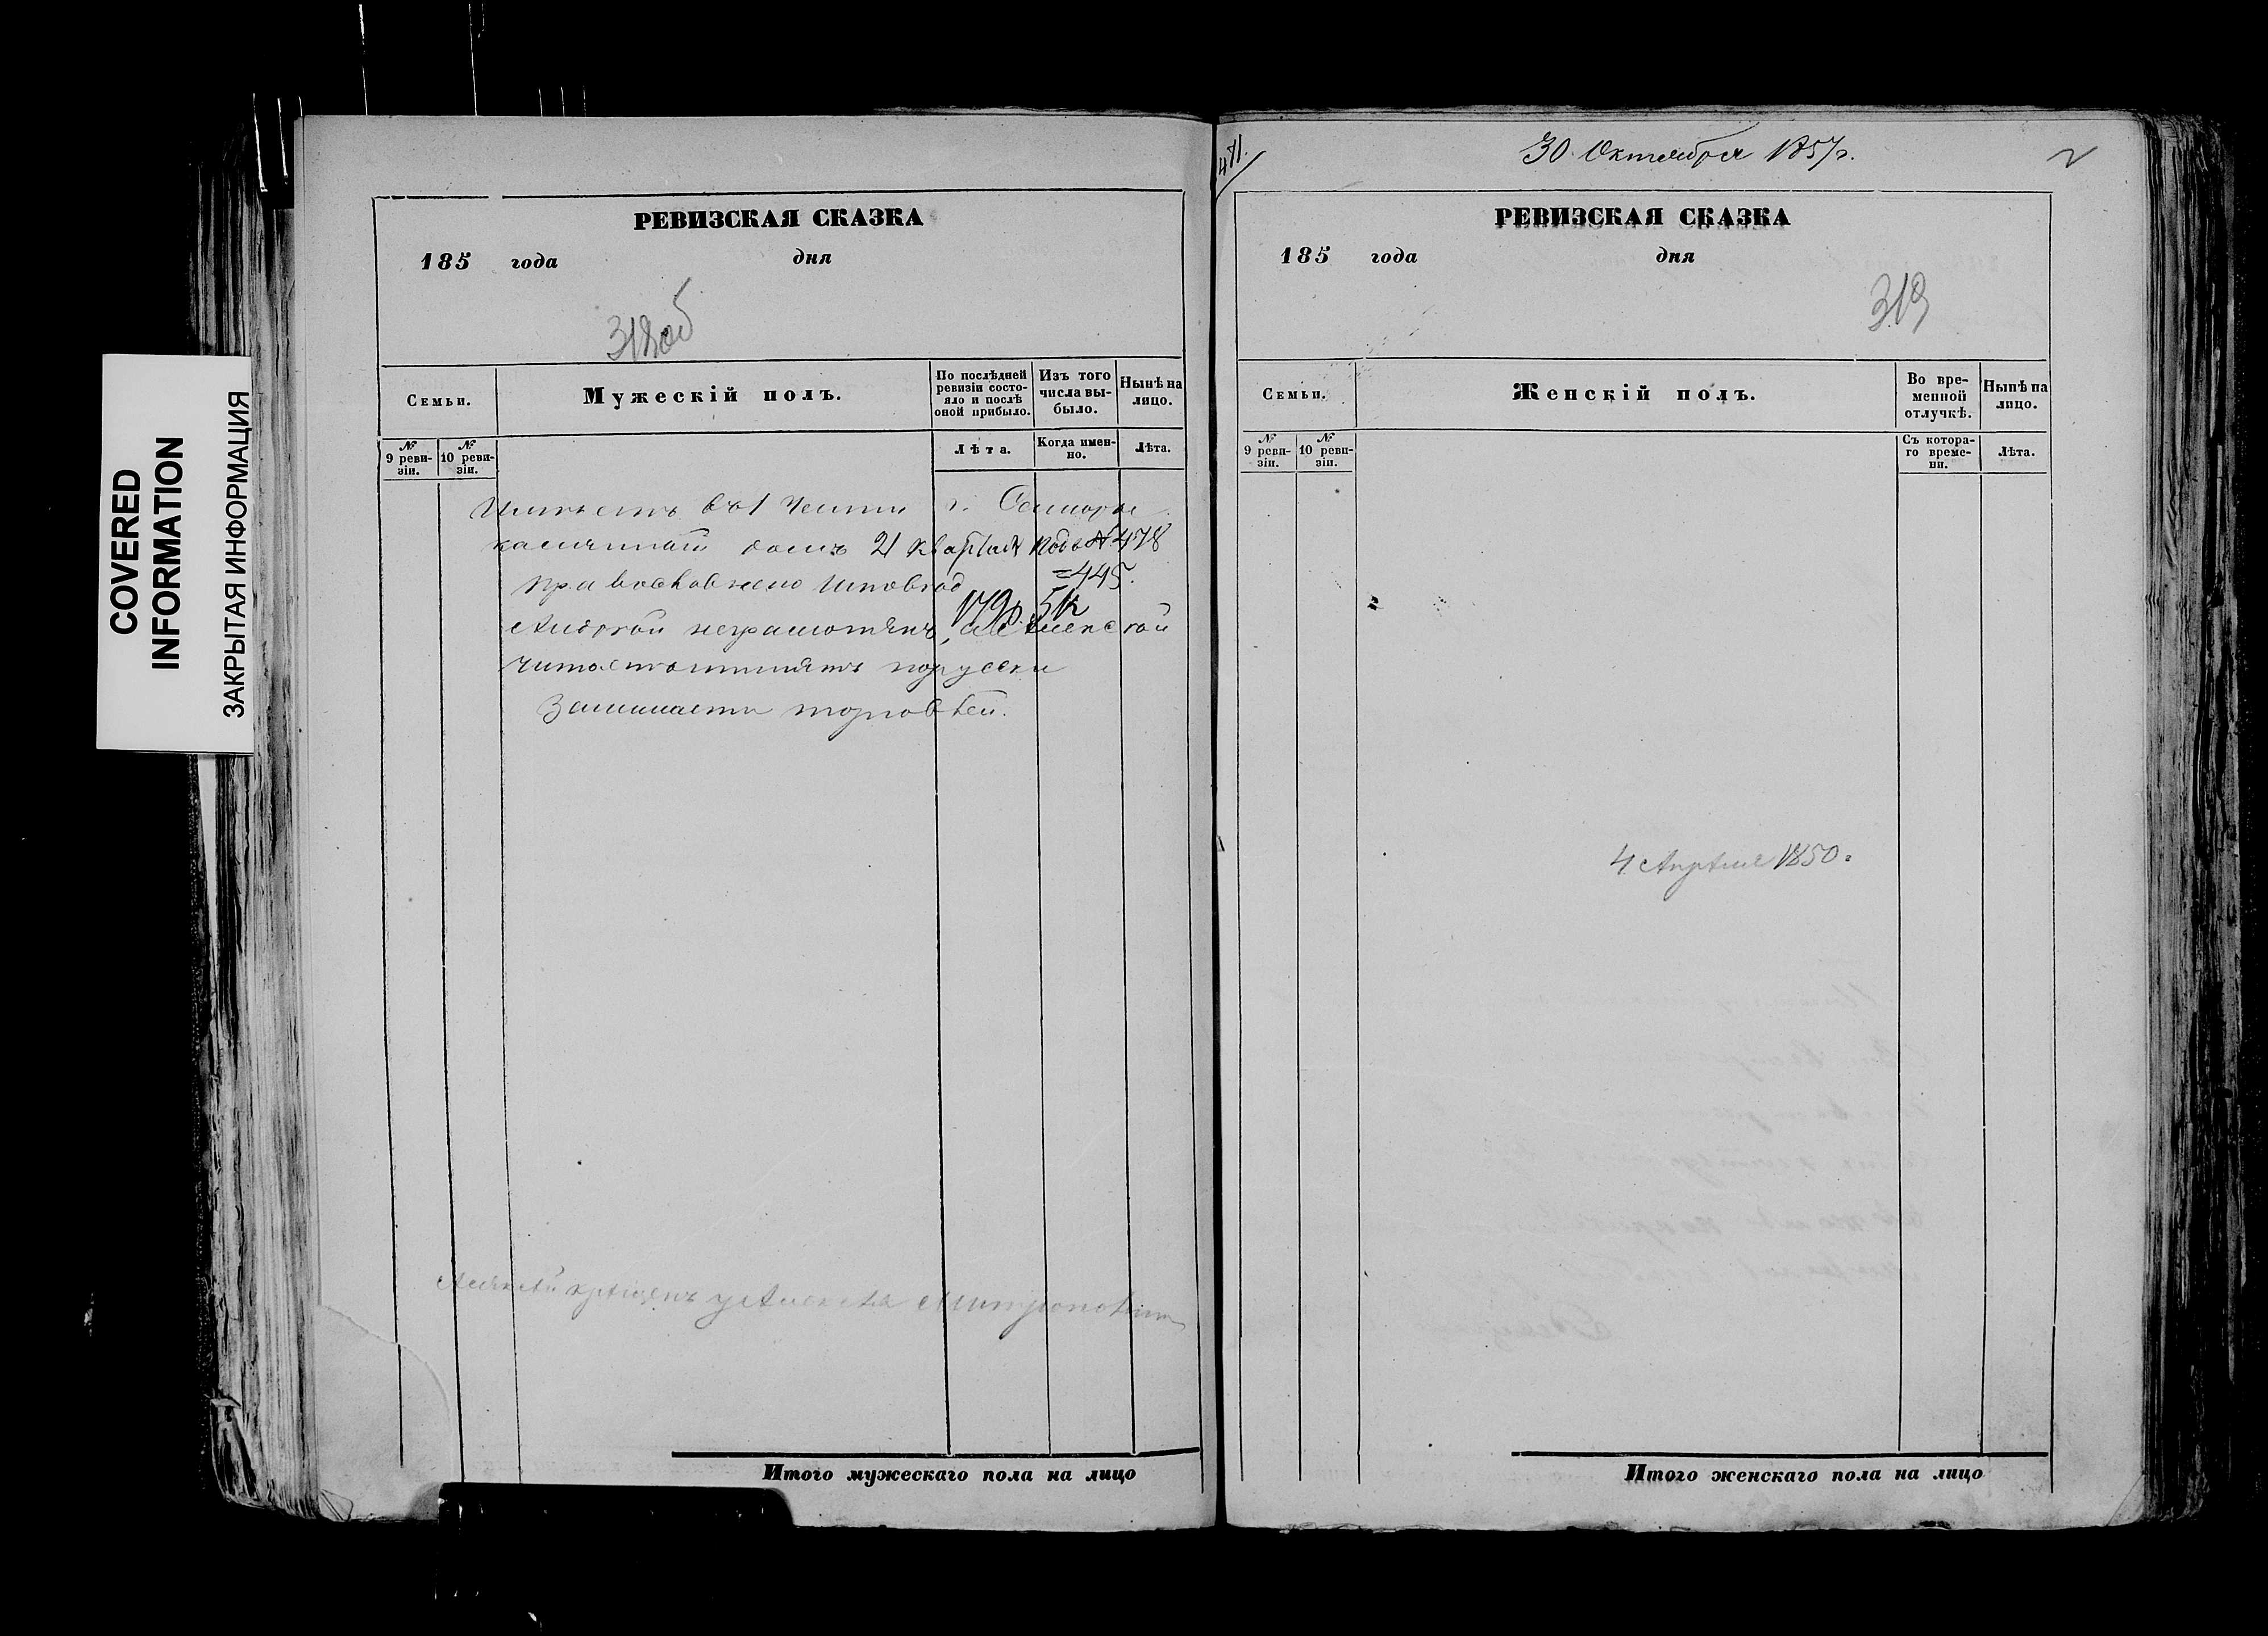 COVERED
INFORMATION
ЗАКРЫТАЯ ИНФОРМАЦИЯ
РЕВИЗСКАЯ СКАЗКА
185 года дня
318об
Семьи.
Мужескій полъ.
По послѣдней ревизіи состояло и послѣ оной прибыло.
Изъ того числа выбыло.
Нынѣ на лицо.
№ 9 ревизіи.
№ 10 ревизіи.
Лѣта.
Когда именно.
Лѣта.
Имѣетъ въ 1 части г. Самары
каменный домъ 21 кварталѣ подъ № 478
=445.
179р. 5к
Андрей неграмотенъ, а Алексей
читаетъ пишетъ по русски
Занимается торговлей.
Алексей крещенъ у Алексея Митрополита
Итого мужескаго пола на лицо
471.
30 Октября 1857г.
РЕВИЗСКАЯ СКАЗКА
185 года дня
319
Семьи.
Женскій полъ.
Во временной отлучкѣ.
Нынѣ на лицо.
№ 9 ревизіи.
№ 10 ревизіи.
Съ котораго времени.
Лѣта.
4 Апрѣля 1850г
Итого женскаго пола на лицо